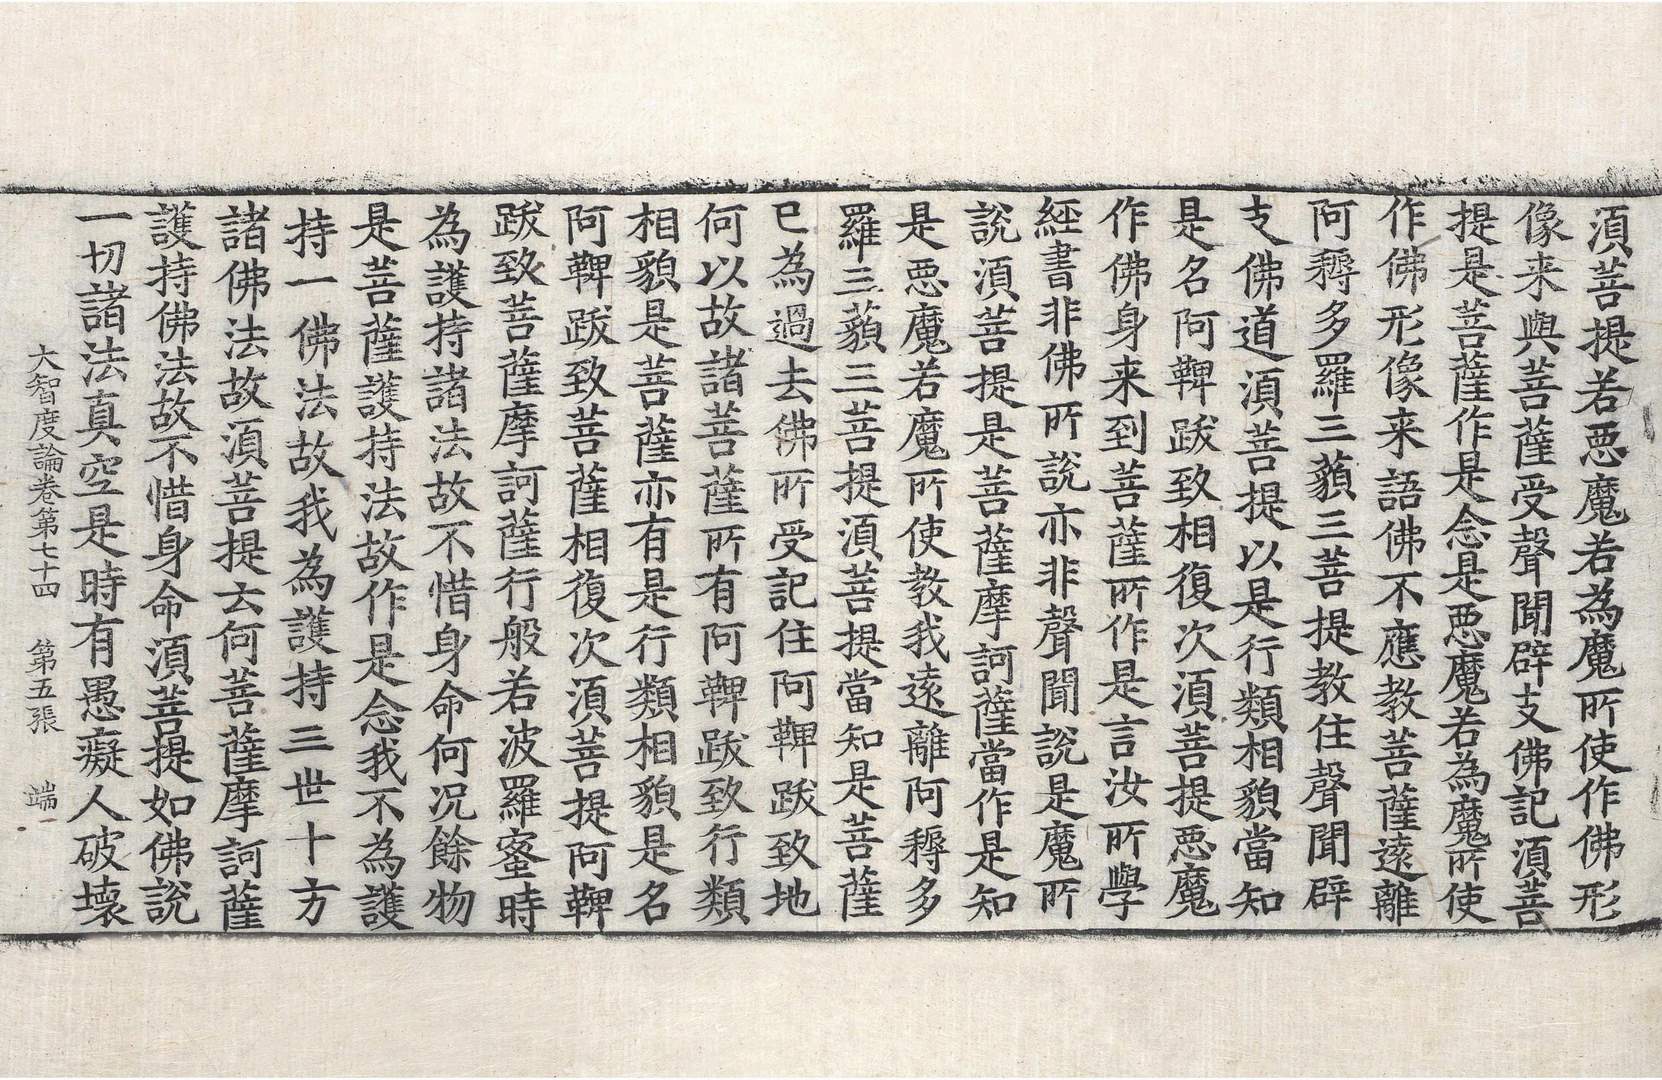 須菩提若惡魔若為魔所使作佛形
像来與菩薩受聲聞辟支佛記須菩
提是菩薩作是念是惡魔若為魔所使
作佛形像来語佛不應教菩薩遠離
阿耨多羅三藐三菩提教住聲聞辟
支佛道須菩提以是行類相貌當知
是名阿鞞跋致相復次須菩提惡魔
作佛身来到菩薩所作是言汝所學
經書非佛所說亦非聲聞說是魔所
說須菩提是菩薩摩訶薩當作是知
是惡魔若魔所使教我遠離阿耨多
羅三藐三菩提須菩提當知是菩薩
已為過去佛所受記住阿鞞跋致地
何以故諸菩薩所有阿鞞跋致行類
相貌是菩薩亦有是行類相貌是名
阿鞞跋致菩薩相復次須菩提阿鞞
跋致菩薩摩訶薩行般若波羅蜜時
為護持諸法故不惜身命何況餘物
是菩薩護持法故作是念我不為護
持一佛法故我為護持三世十方
諸佛法故須菩提云何菩薩摩訶薩
護持佛法故不惜身命須菩提如佛說
一切諸法真空是時有愚癡人破壞
大智度論卷第七十四　第五張　端